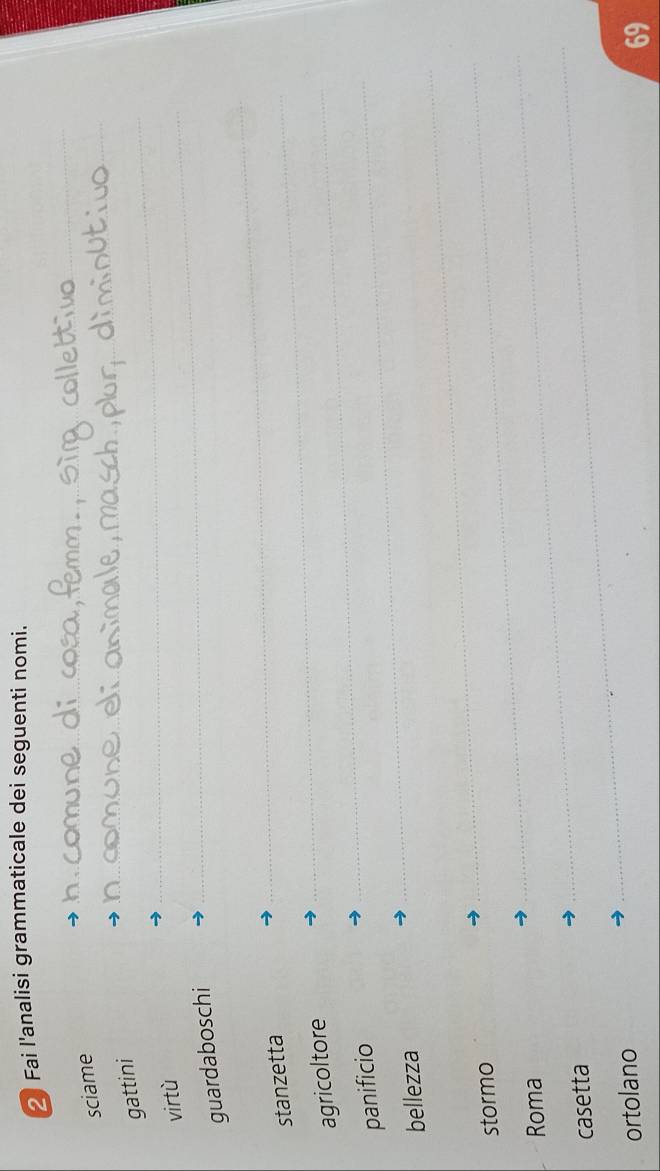 2 Fai l'analisi grammaticale dei seguenti nomi.
sciame → n. comune di cosa, femm., sing collettivo
gattini → n comune di animale, masch., plur, diminutivo
virtù →
guardaboschi →
stanzetta →
agricoltore →
panificio →
bellezza →
stormo →
Roma →
casetta →
ortolano →
69